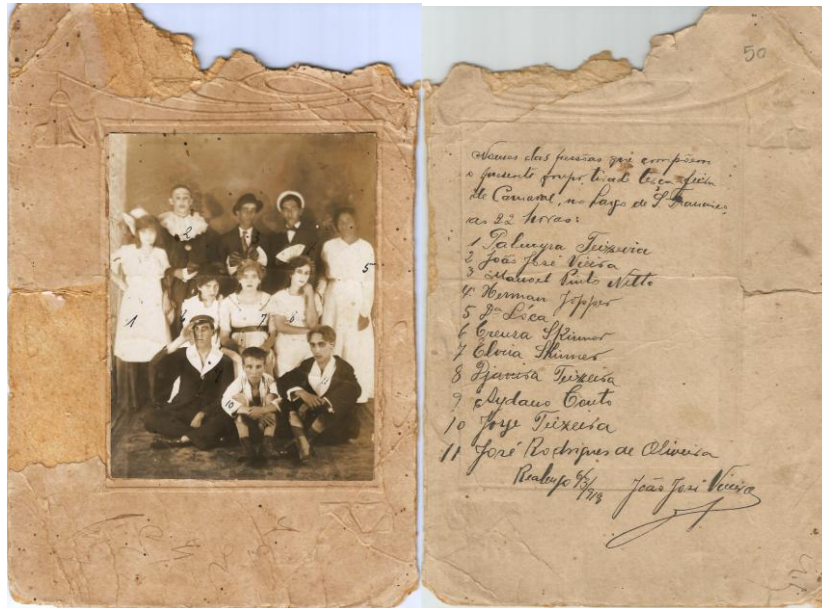 1
2
3
4
5
6
7
8
10
11
50
Nomes das pessôas que compõem
o presente grupo, tirado terça-feira
de Carnaval, no Largo de S. Francisco,
as 22 horas:
1 Palmyra Teixeira
2 João José Vieira
3 Manoel Pinto Netto
4 Herman Jopper
5 Dª Léca
6 Creusa Skinner
7 Elvira Skinner
8 Djanira Teixeira
9 Aydano Couto
10 Jorge Teixeira
11 José Rodrigues de Oliveira
Realengo
João José Vieira